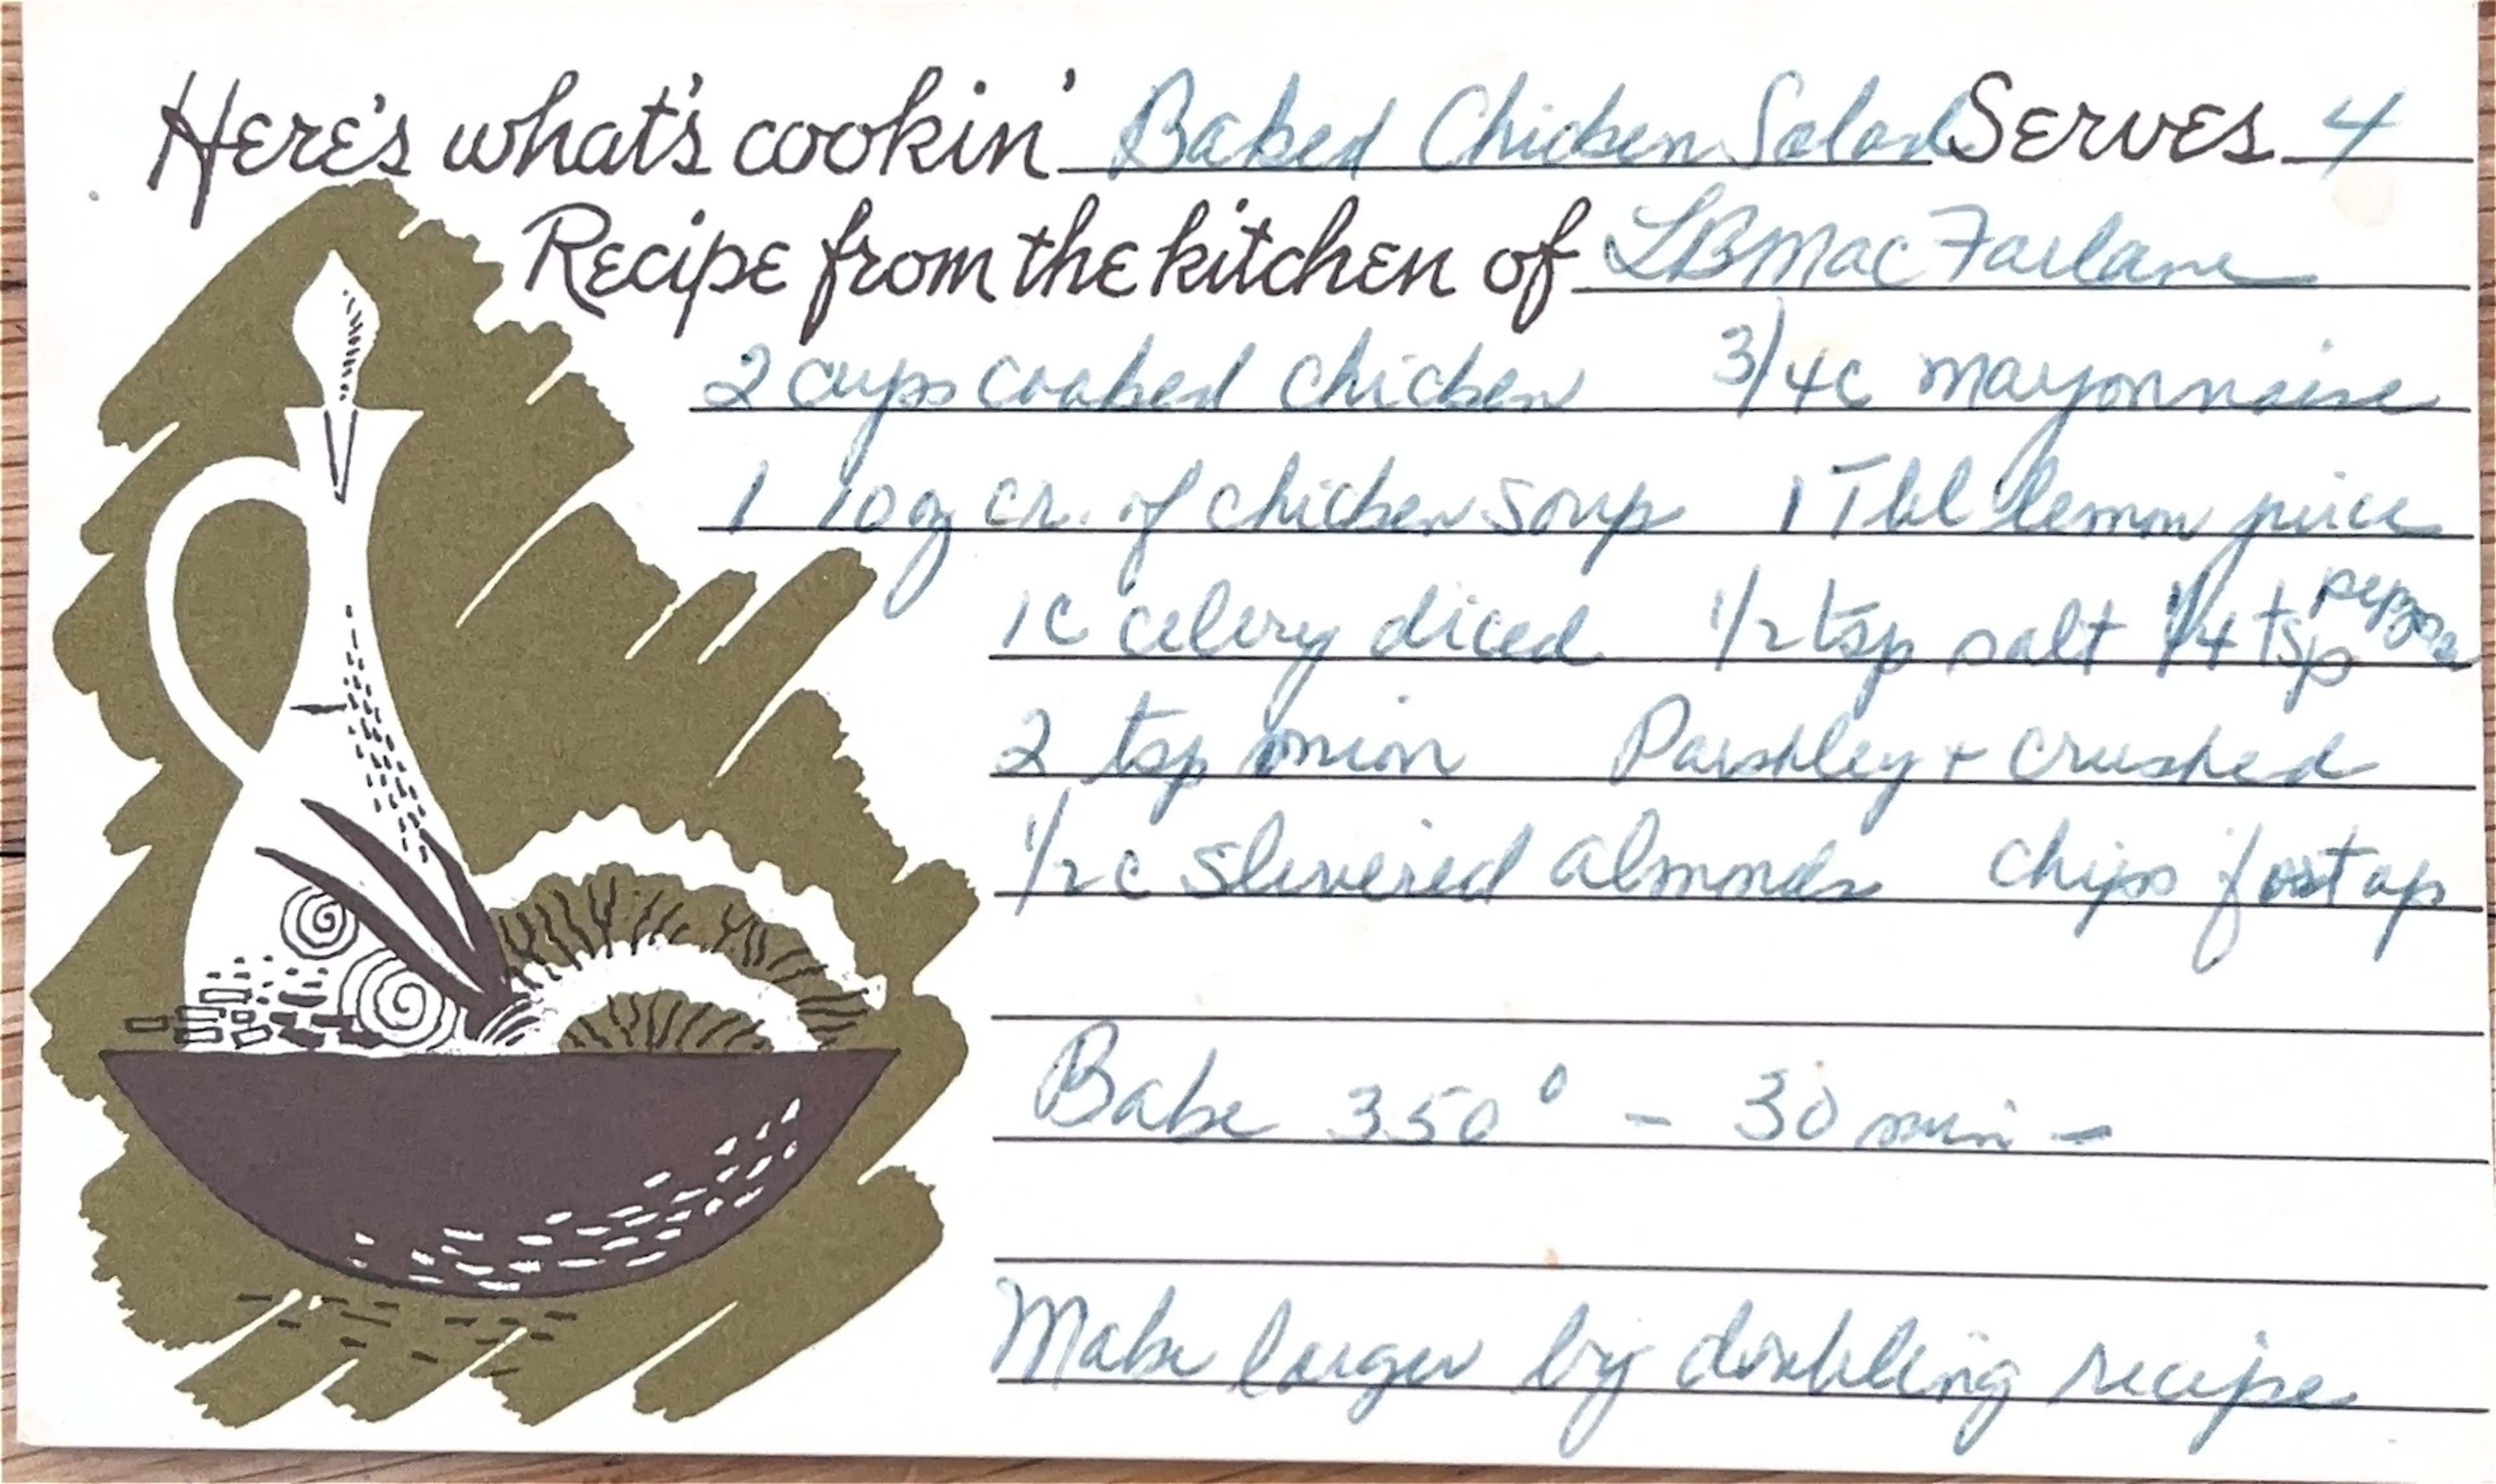 Here's what's cookin' Baked Chicken Salad Serves 4
Recipe from the kitchen of LB MacFarlane
2 cups cooked chicken 3/4c mayonnaise
1 10 oz cr. of chicken soup 1 Tbl lemon juice
1c celery diced 1/2 tsp salt 1/4 tsp pepper
2 tsp onion Parshley + crushed
1/2 c slivered almonds chips for top
Bake 350° - 30 min -
Make larger by doubling recipe